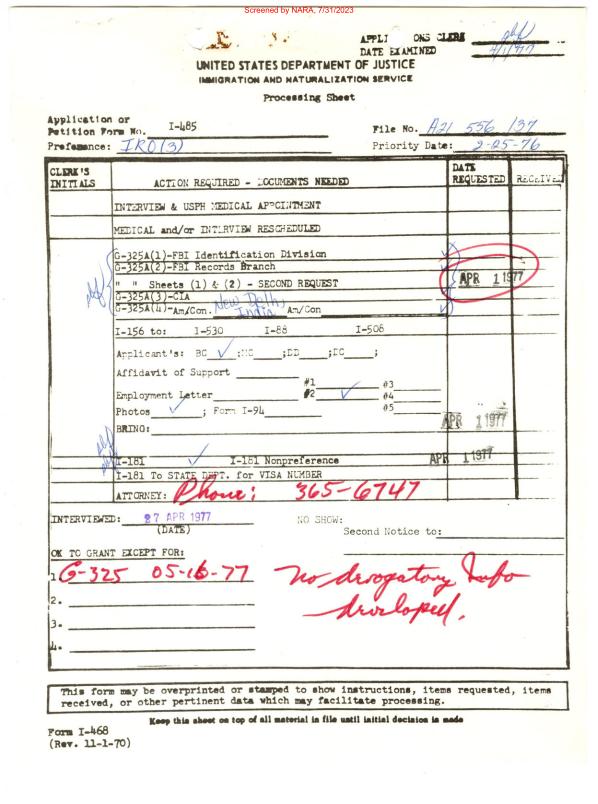 Screened by NARA, 7/31/2023
CLERK
DATE EXAMINED 4/1/77
UNITED STATES DEPARTMENT OF JUSTICE
IMMIGRATION AND NATURALIZATION SERVICE
Processing Sheet
Application or
Petition Form No. I-485 File No. A21 556 137
Preference: IRO(3) Priority Date: 2-25-76
CLERK'S INITIALS ACTION REQUIRED - DOCUMENTS NEEDED DATE REQUESTED RECEIVED
INTERVIEW & USPH MEDICAL APPOINTMENT
MEDICAL and/or INTERVIEW RESCHEDULED
G-325A(1)-FBI Identification Division
G-325A(2)-FBI Records Branch
" " Sheets (1) & (2) - SECOND REQUEST APR 1 1977
G-325A(3)-CIA
G-325A(4)-Am/Con. New Delhi, India Am/Con
I-156 to: I-530 I-88 I-508
Applicant's: BC ✓ ;MC ;DD ;DC ;
Affidavit of Support
#1 #3
Employment Letter #2 ✓ #4
Photos ✓ ; Form I-94 #5
BRING: APR 1 1977
I-181 ✓ I-181 Nonpreference APR 1 1977
I-181 To STATE DEPT. for VISA NUMBER
ATTORNEY: Phone: 365-6747
INTERVIEWED: 27 APR 1977 NO SHOW:
(DATE) Second Notice to:
OK TO GRANT EXCEPT FOR:
1. G-325 05-16-77 No derogatory Info
2. developed.
3.
4.
This form may be overprinted or stamped to show instructions, items requested, items
received, or other pertinent data which may facilitate processing.
Keep this sheet on top of all material in file until initial decision is made
Form I-468
(Rev. 11-1-70)